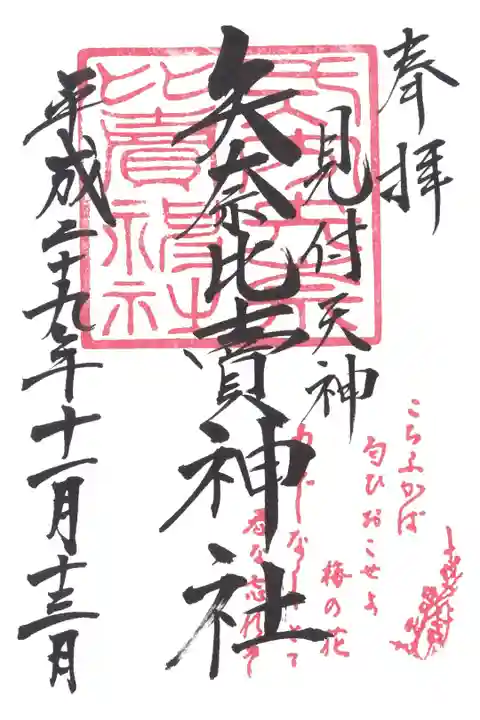 奉拝
見付天神
矢奈比賣神社
平成二十九年十一月十三月
こちふかば
匂ひおこせよ
梅の花
あるじなしとて
春な忘れそ